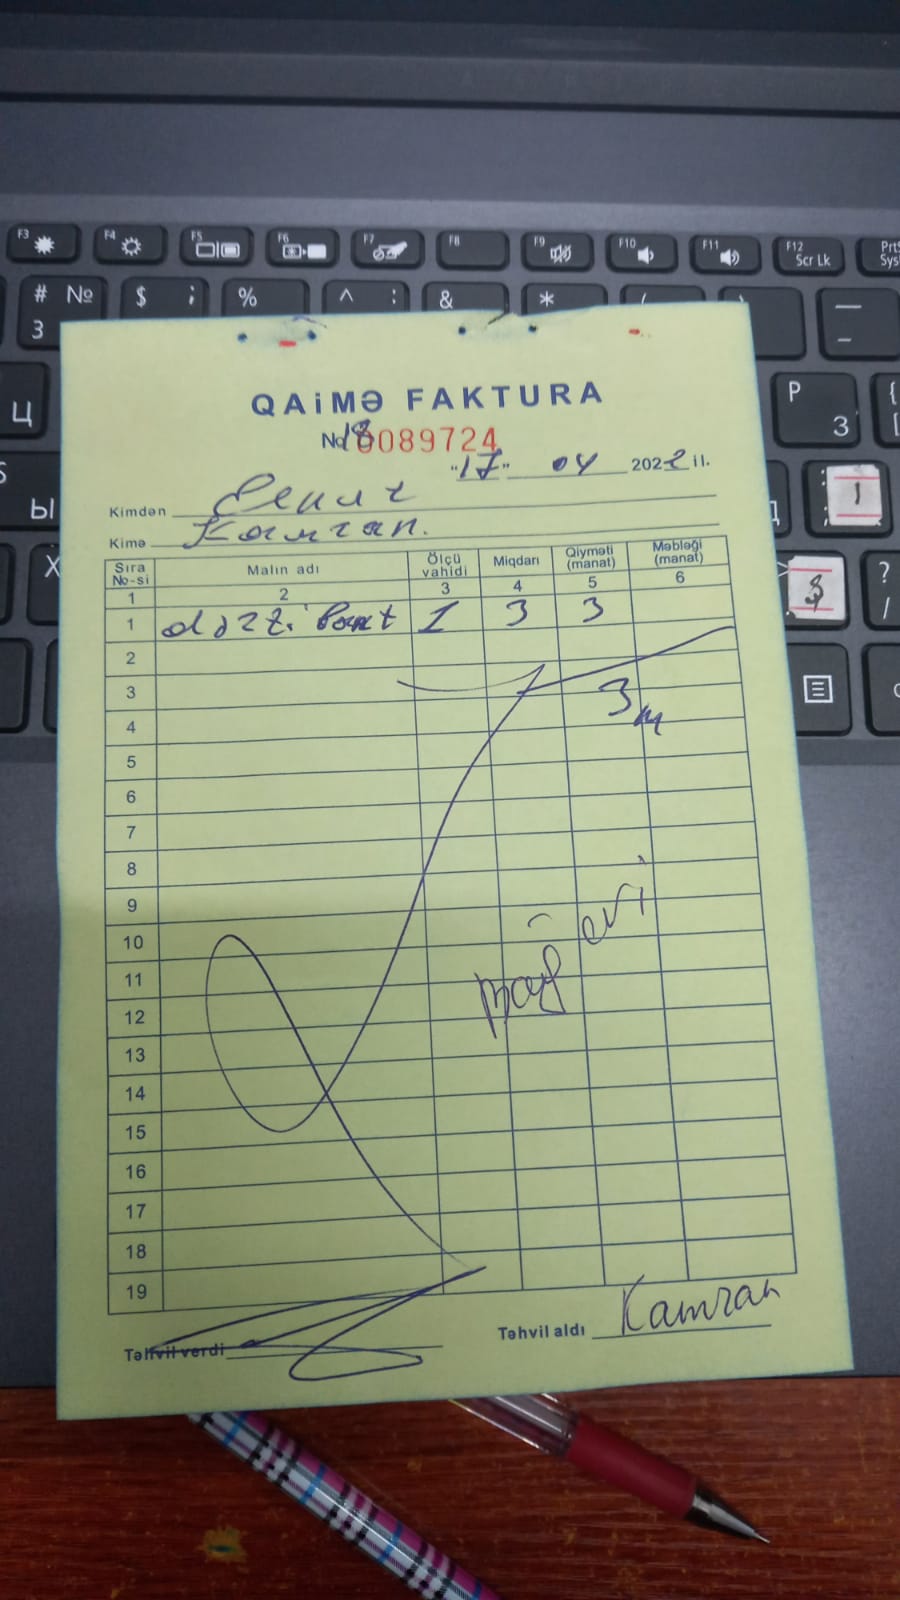 QAİMƏ FAKTURA
№ 18 0089724
"17" 04 2022 il.
Kimdən
Kimə Kamran.
Sıra No-si Malın adı Ölçü vahidi Miqdarı Qiyməti (manat) Məbləği (manat)
1 2 3 4 5 6
1 1 3 3
2
3 3 m
4
5
6
7
8
9
10
11
12
13
14
15
16
17
18
19
Mayğ evi
Təhvil verdi
Təhvil aldı Kamran
F3 F4 F5 F6 F7 F8 F9 F10 F11 F12 Scr Lk
# № 3 $ ; % ^ : & *
Ц Ы P З